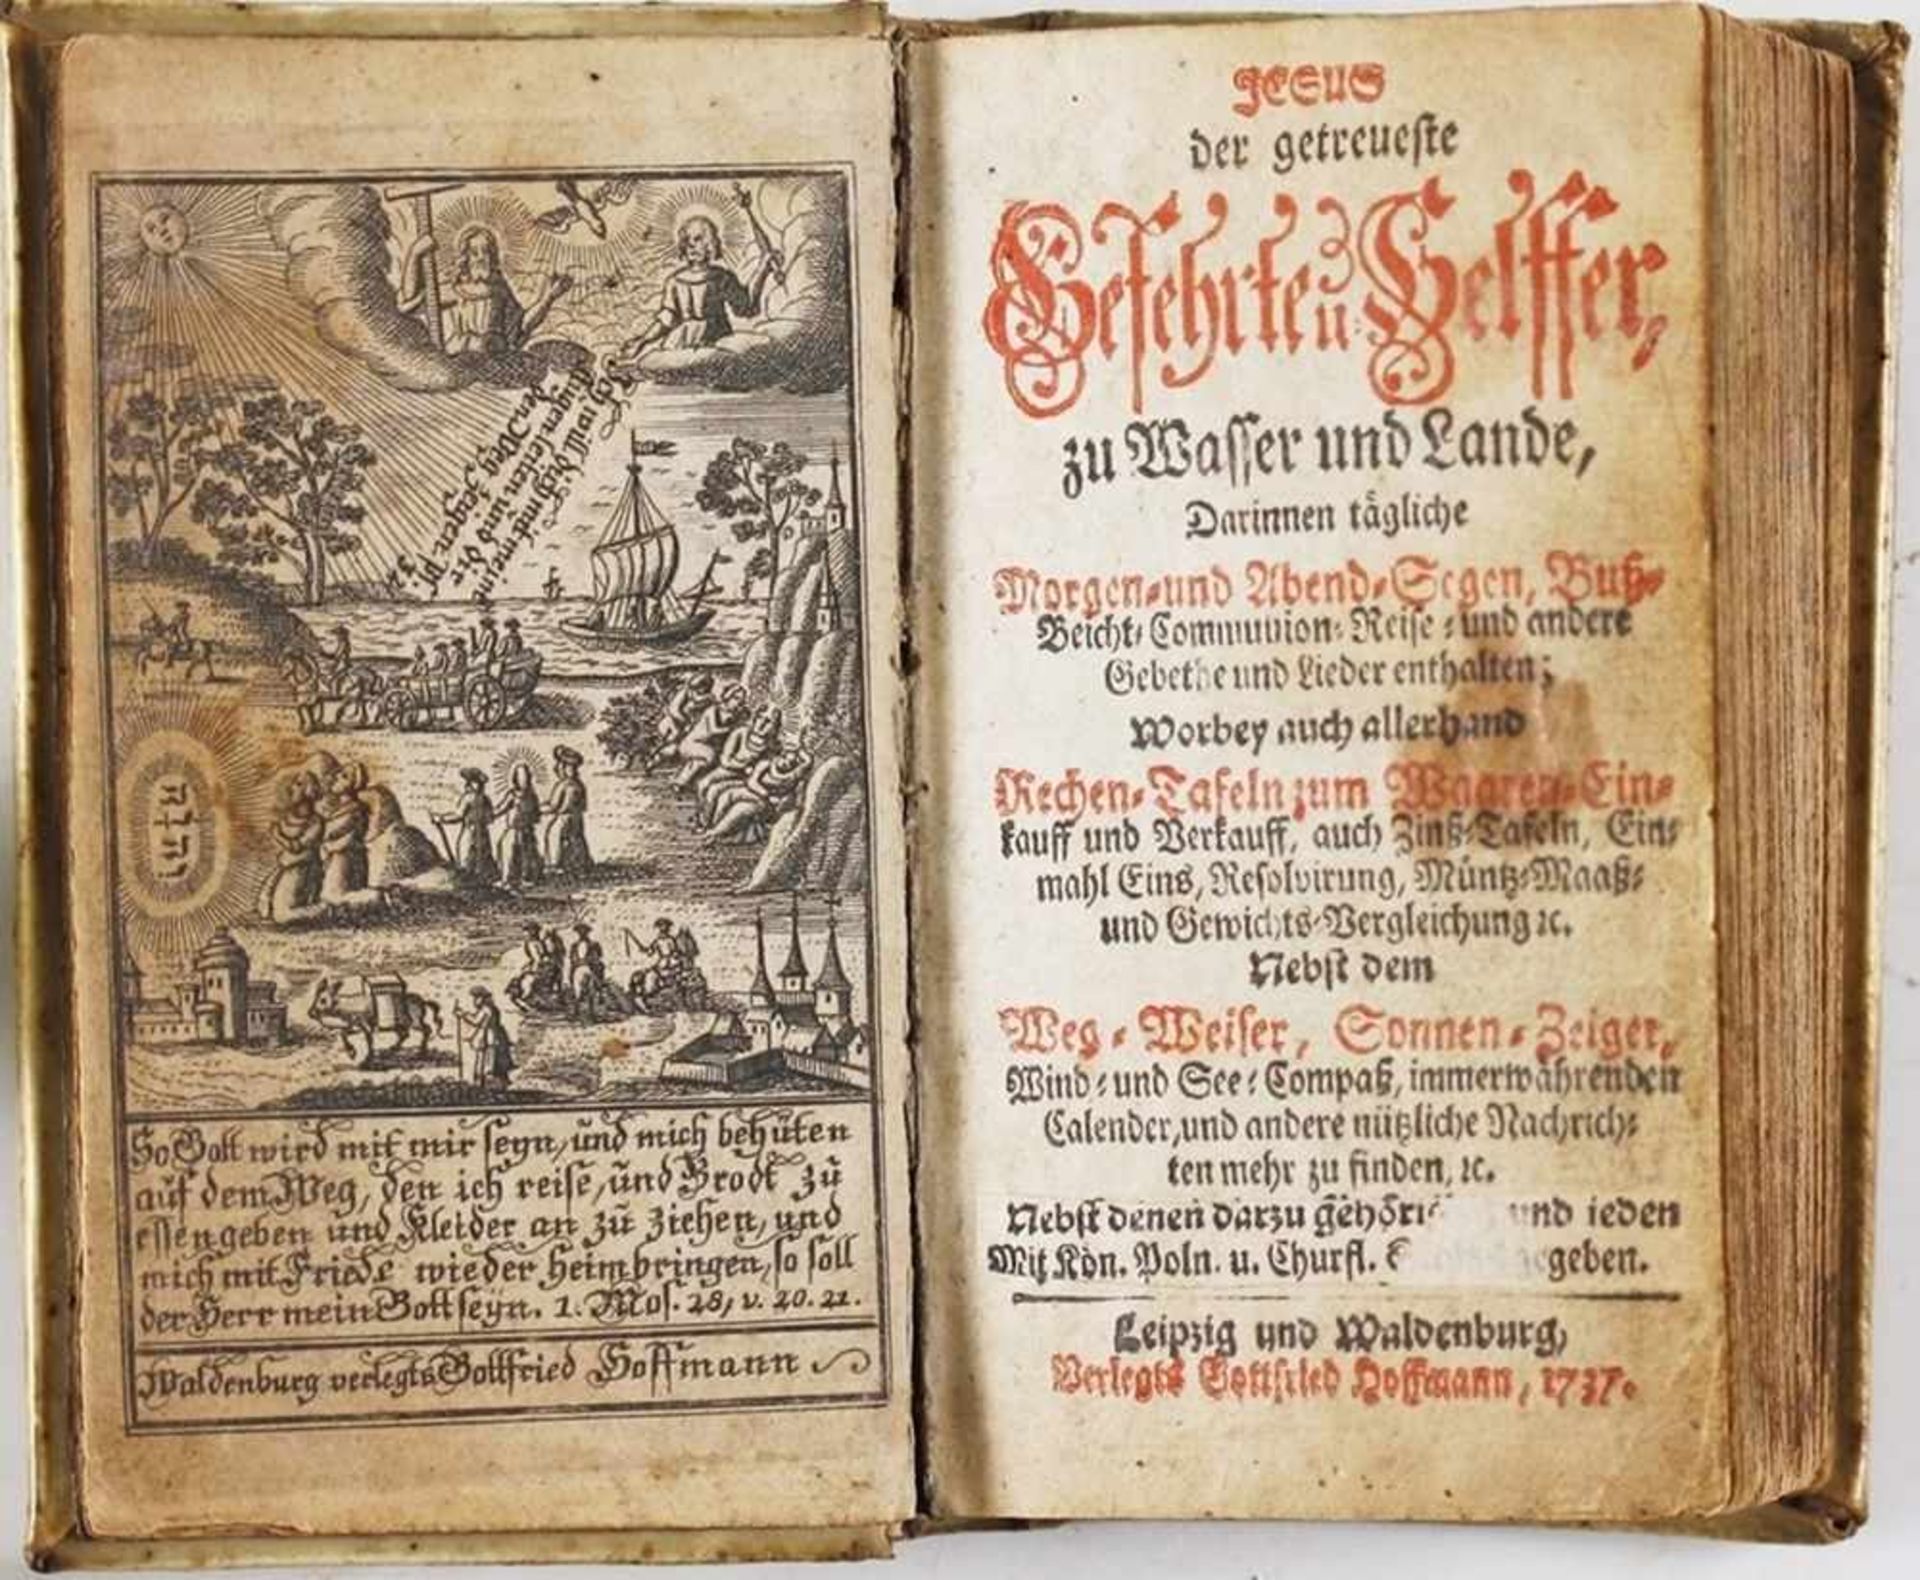 Ich will dich mit meine
Augen leiten und dir
den Weg zeigen. ps.
32
יהוה
So Gott wird mit mir seyn, und mich behüten
auf dem Weg, den ich reise, und Brodt zu
essen geben und Kleider an zu ziehen, und
mich mit Friede wieder heim bringen, so soll
der Herr mein Gott seyn. 1. Mos. 28, v. 20. 21.
Waldenburg verlegts Gottfried Hoffmann
JESUS
der getreueste
Gefehrte u: Helffer,
zu Wasser und Lande,
Darinnen tägliche
Morgen-und Abend-Segen, Buß-
Beicht-Communion-Reise-und andere
Gebethe und Lieder enthalten;
Worbey auch allerhand
Rechen-Tafeln zum Waaren-Ein-
kauff und Verkauff, auch Zinß-Tafeln, Ein-
mahl Eins, Resolvirung, Müntz-Maaß-
und Gewichts-Vergleichung ꝛc.
Nebst dem
Weg-Weiser, Sonnen-Zeiger,
Wind-und See-Compaß, immerwährenden
Calender, und andere nützliche Nachrich-
ten mehr zu finden, ꝛc.
Nebst denen darzu und ieden
Mit Kön. Poln. u. Churfl. geben.
Leipzig und Waldenburg,
Verlegts Gottfried Hoffmann, 1737.